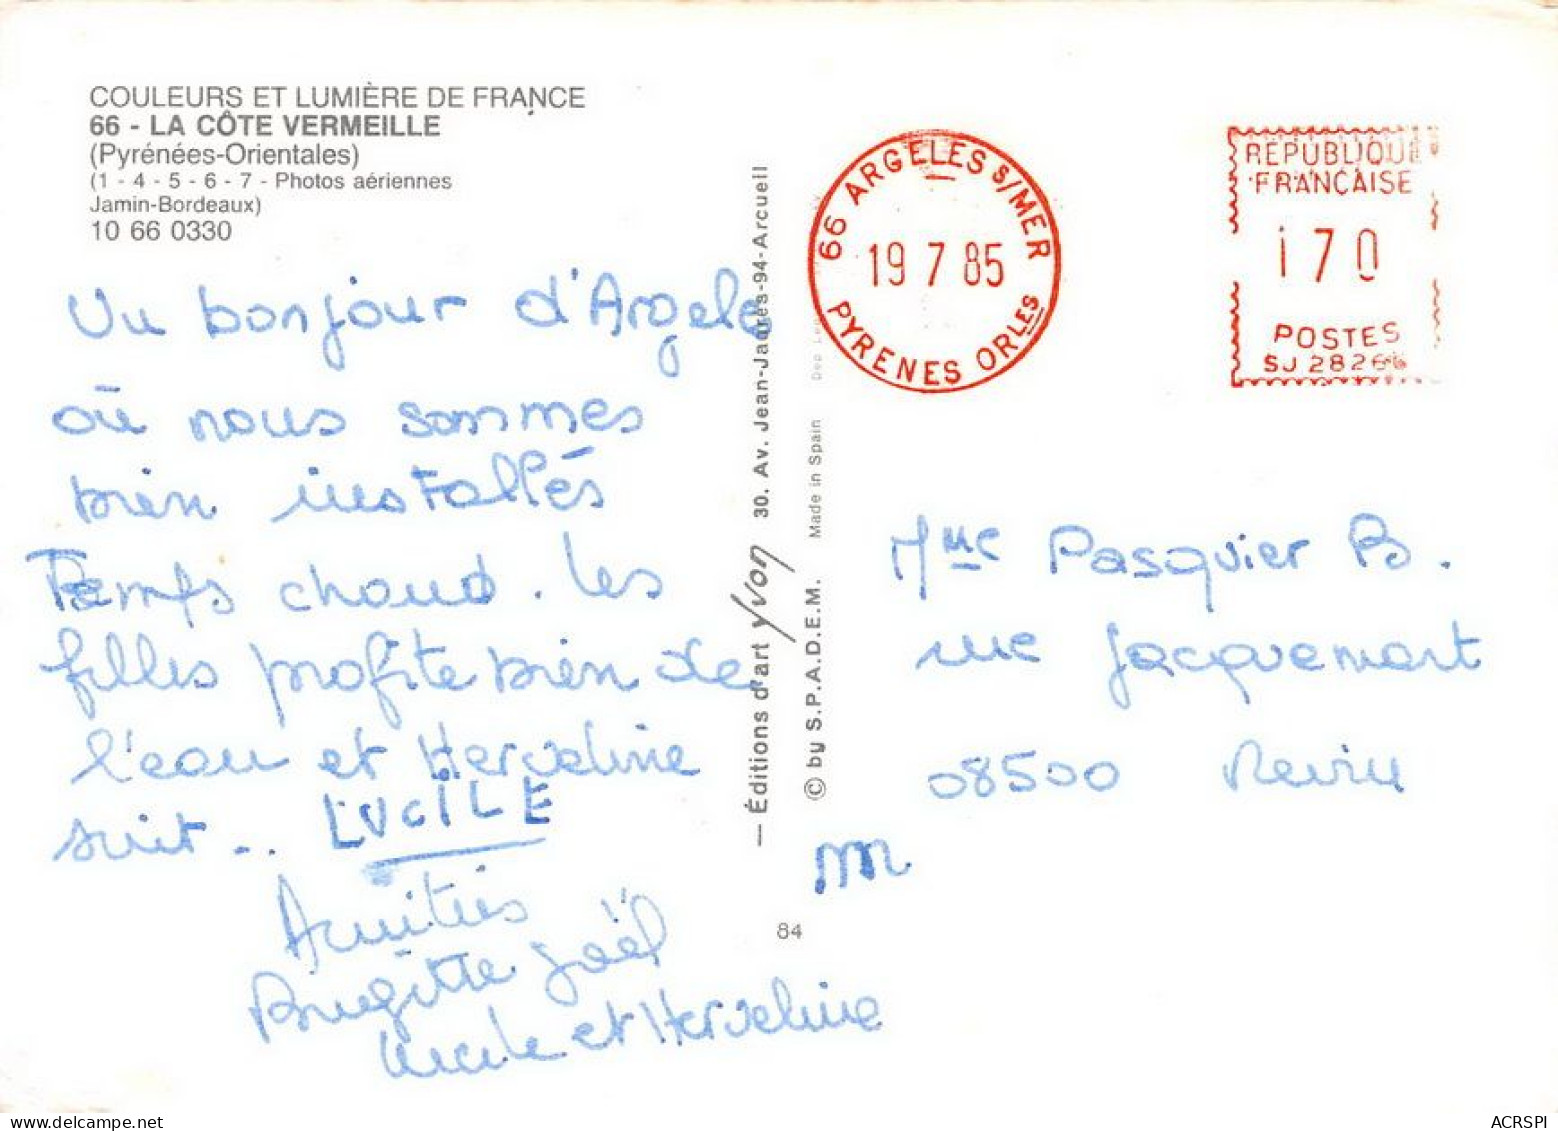 COULEURS ET LUMIÈRE DE FRANCE
66 - LA CÔTE VERMEILLE
(Pyrénées-Orientales)
(1 - 4 - 5 - 6 - 7 - Photos aériennes
Jamin-Bordeaux)
10 66 0330
Un bonjour d'Argeles
où nous sommes
bien installés
Temps chaud. les
filles profite bien de
l'eau et Herveline
suit...
LUCILE
Amitiés
Brigitte Joël
Lucile et Herveline
— Éditions d'art Yvon 30. Av. Jean-Jaurès-94-Arcueil
© by S.P.A.D.E.M. Made in Spain
84
66 ARGELES S/MER
19 7 85
PYRENEES ORLES
REPUBLIQUE
FRANCAISE
170
POSTES
Mme Pasquier B.
rue Jacquemart
08500 Revin
m
ACRSPI